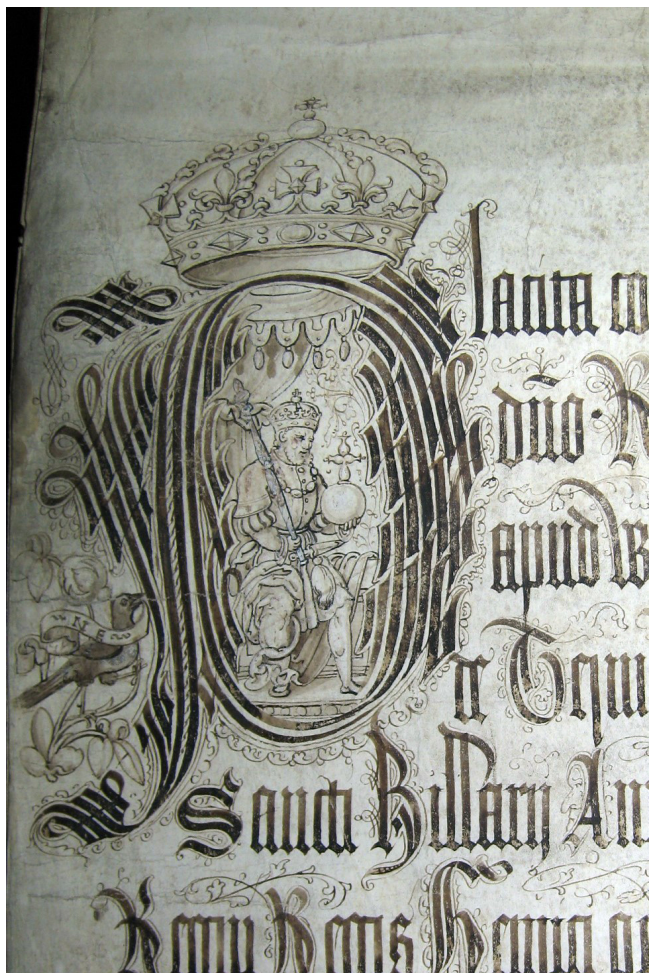 Placita co
dño R
apud W
NE
de Termi
Sancti Hillarij Ann
Regni Regis Henrici oc